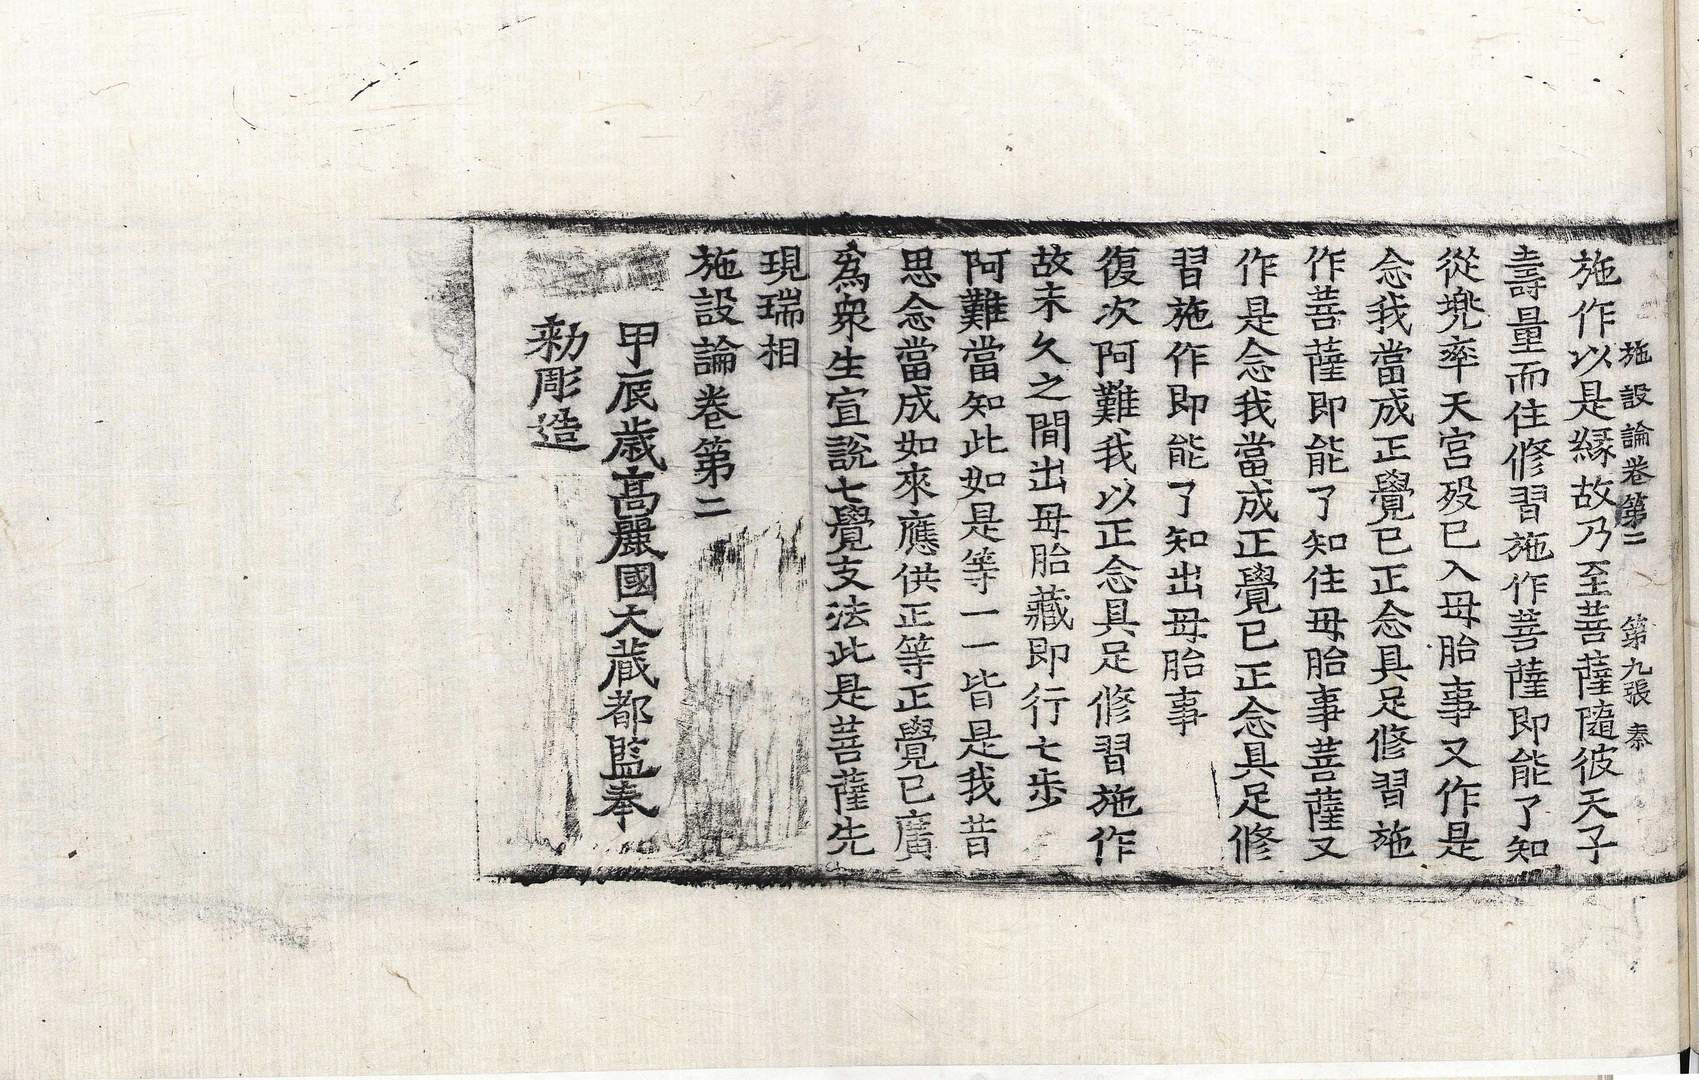 施設論卷第二 第九張 㤗
施作以是緣故乃至菩薩隨彼天子
壽量而住修習施作菩薩即能了知
從兜率天宮歿已入母胎事又作是
念我當成正覺已正念具足修習施
作菩薩即能了知住母胎事菩薩又
作是念我當成正覺已正念具足修
習施作即能了知出母胎事
復次阿難我以正念具足修習施作
故未久之間出母胎藏即行七步
阿難當知此如是等一一皆是我昔
思念當成如來應供正等正覺已廣
爲衆生宣說七覺支法此是菩薩先
現瑞相
施設論卷第二
甲辰歲高麗國大藏都監奉
勑彫造